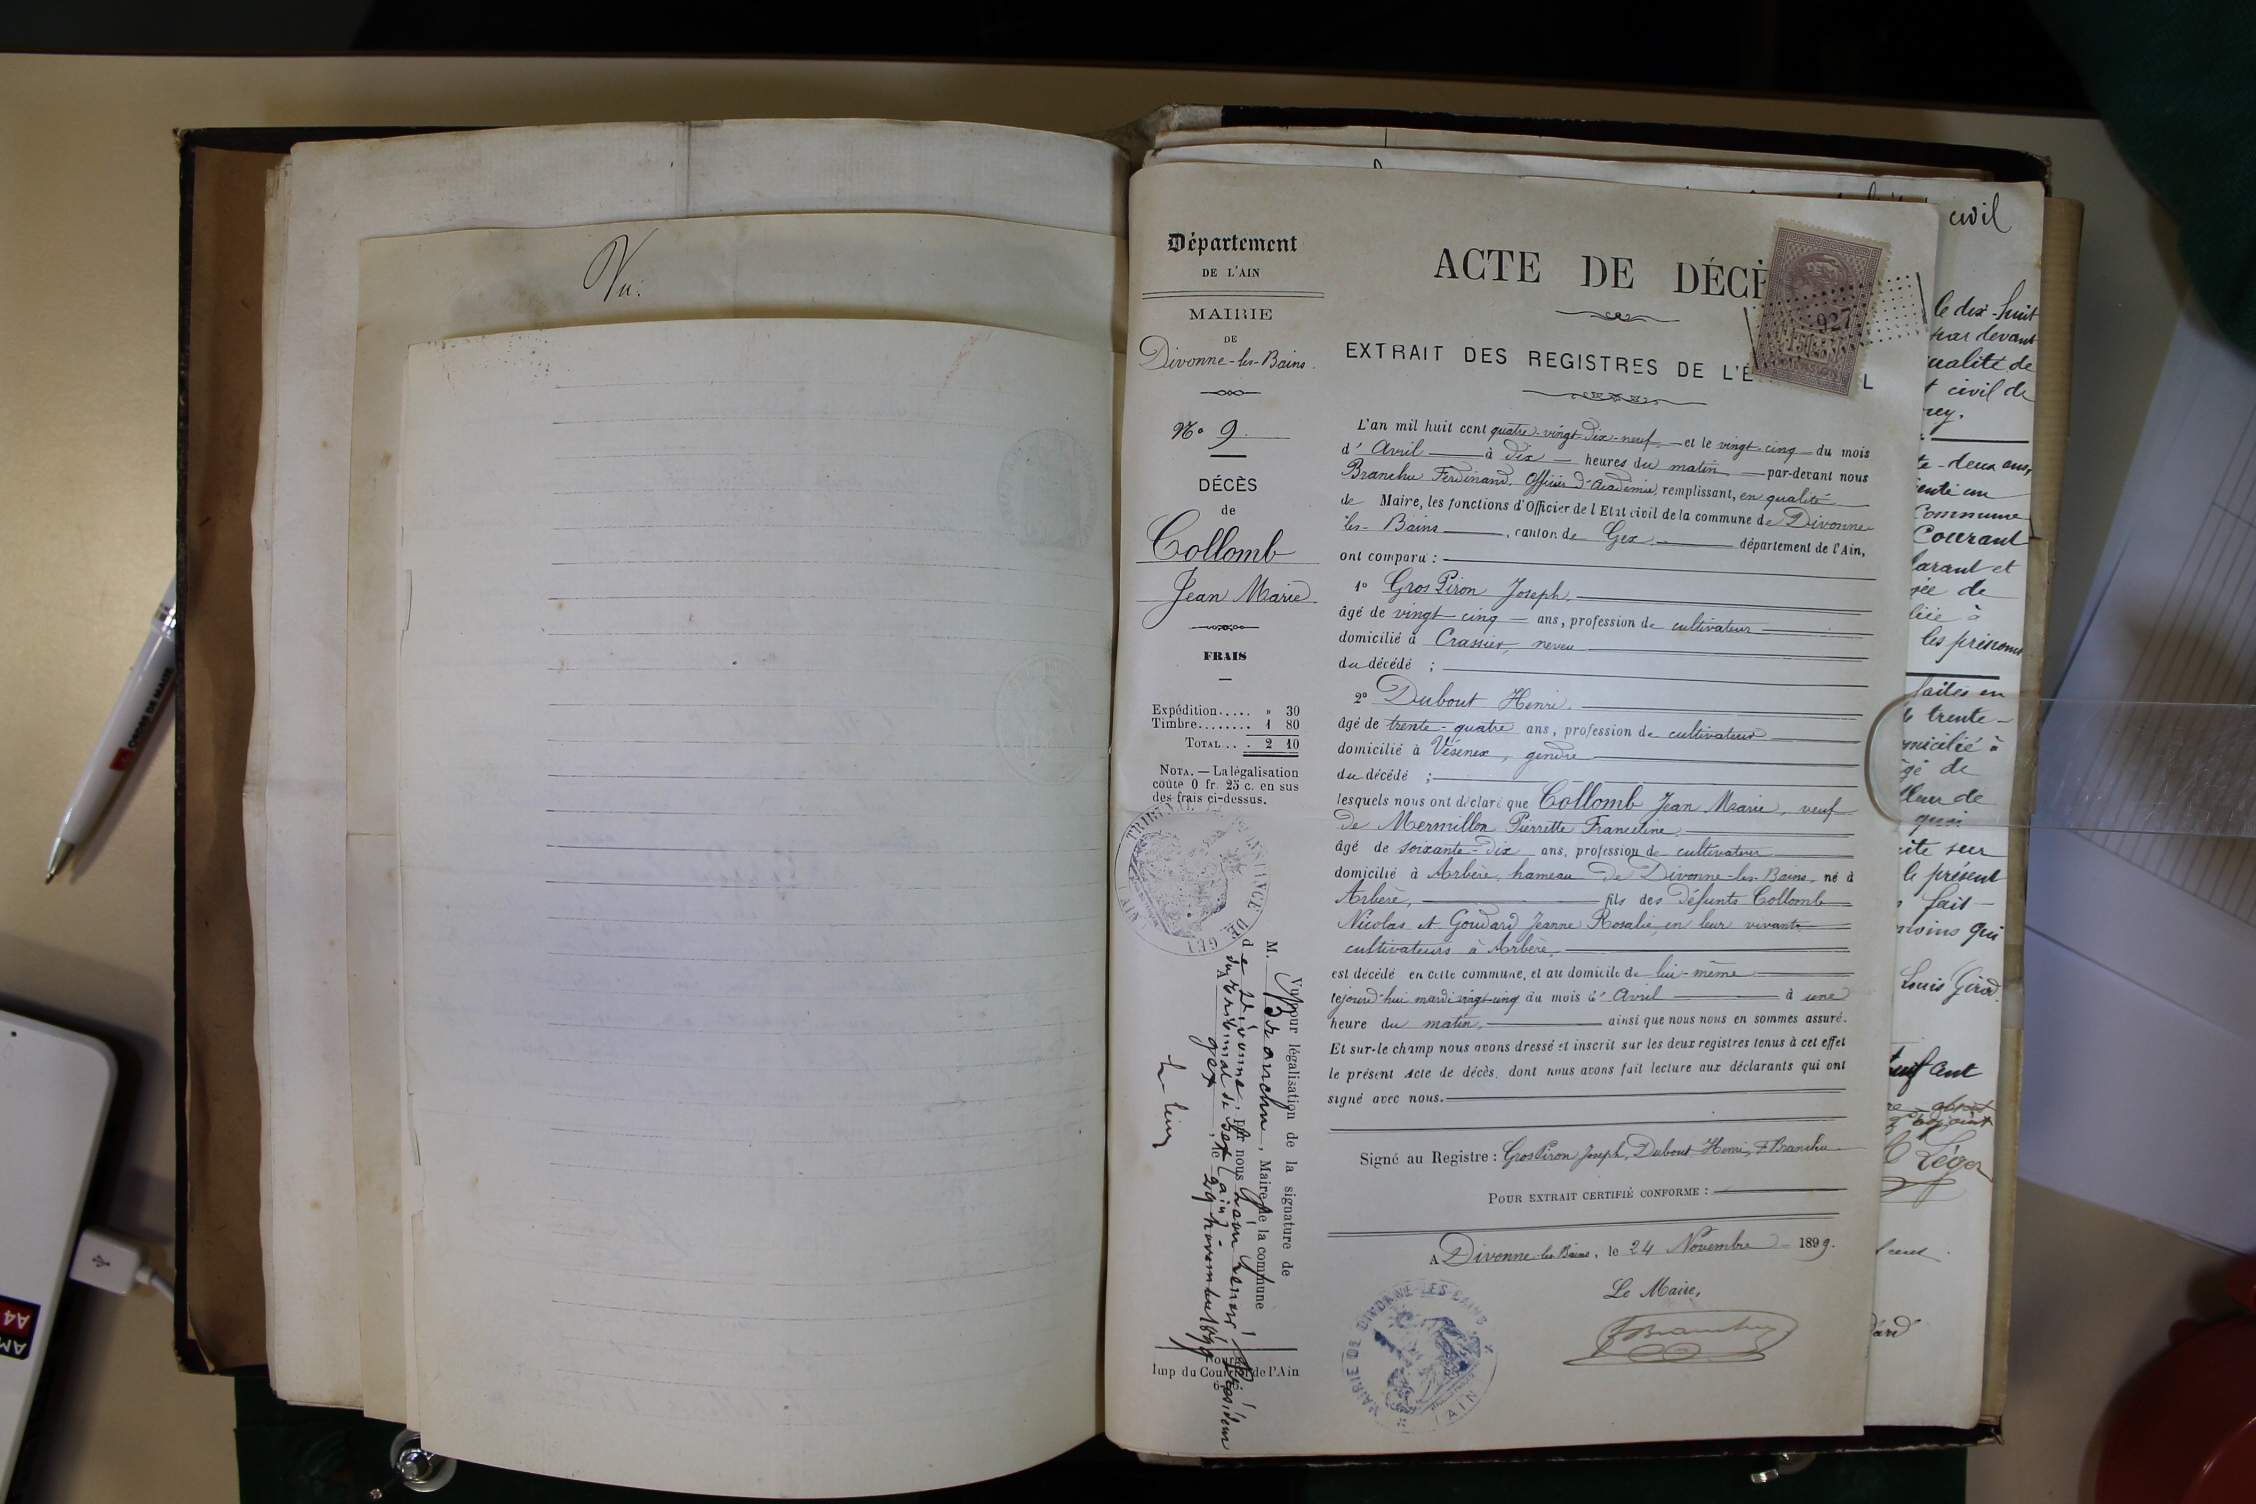 Vu:
Département
DE L'AIN
MAIRIE
DE
Divonne-les-Bains.
N° 9.
DÉCÈS
de
Collomb
Jean Marie
FRAIS
Expédition..... » 30
Timbre........ 1 80
TOTAL... 2 10
NOTA. — La légalisation
coûte 0 fr. 25 c. en sus
des frais ci-dessus.
Vu pour légalisation de la signature de
M. Branchu, Maire de la commune
de Divonne, par nous
du tribunal de Gex (ain)
A Gex, le 29 novembre 1899
Président
Imp du Courrier de l'Ain
ACTE DE DÉCÈ
EXTRAIT DES REGISTRES DE L'É L
927
L'an mil huit cent quatre-vingt-dix-neuf et le vingt-cinq du mois
d'Avril à dix heures du matin par-devant nous
Branchu Ferdinand, Officier d'Académie, remplissant, en qualité
de Maire, les fonctions d'Officier de l'Etat civil de la commune de Divonne
les-Bains, canton de Gex, département de l'Ain,
ont comparu :
1° Gros Piron Joseph
âgé de vingt cinq ans, profession de cultivateur
domicilié à Crassier, neveu
du décédé ;
2° Dubout Henri
âgé de trente-quatre ans, profession de cultivateur
domicilié à Vésenex, gendre
du décédé ;
lesquels nous ont déclaré que Collomb Jean Marie, veuf
de Mermillon Pierrette Francline
âgé de soixante-dix ans, profession de cultivateur
domicilié à Arbère, hameau de Divonne-les-Bains, né à
Arbère, fils des défunts Collomb
Nicolas et Goudard Jeanne Rosalie, en leur vivant
cultivateurs à Arbère,
est décédé en cette commune, et au domicile de lui-même
cejourd'hui mardi vingt-cinq du mois d'Avril à une
heure du matin, ainsi que nous nous en sommes assuré.
Et sur-le champ nous avons dressé et inscrit sur les deux registres tenus à cet effet
le présent Acte de décès, dont nous avons fait lecture aux déclarants qui ont
signé avec nous.
Signé au Registre : Gros Piron Joseph, Dubout Henri, F Branchu
POUR EXTRAIT CERTIFIÉ CONFORME :
A Divonne-les-Bains, le 24 Novembre 1899.
Le Maire,
F Branchu
MAIRIE DE DIVONNE-LES-BAINS
(AIN)
civil
le dix-huit
par devant
qualité de
civil de
te-deux ans,
Commune
Courant
larant et
née de
liée à
les prénoms
faites en
trente-
micilié à
gé de
lleur de
qui
cite sur
le présent
fait
moins qui
Louis Girod
Léger